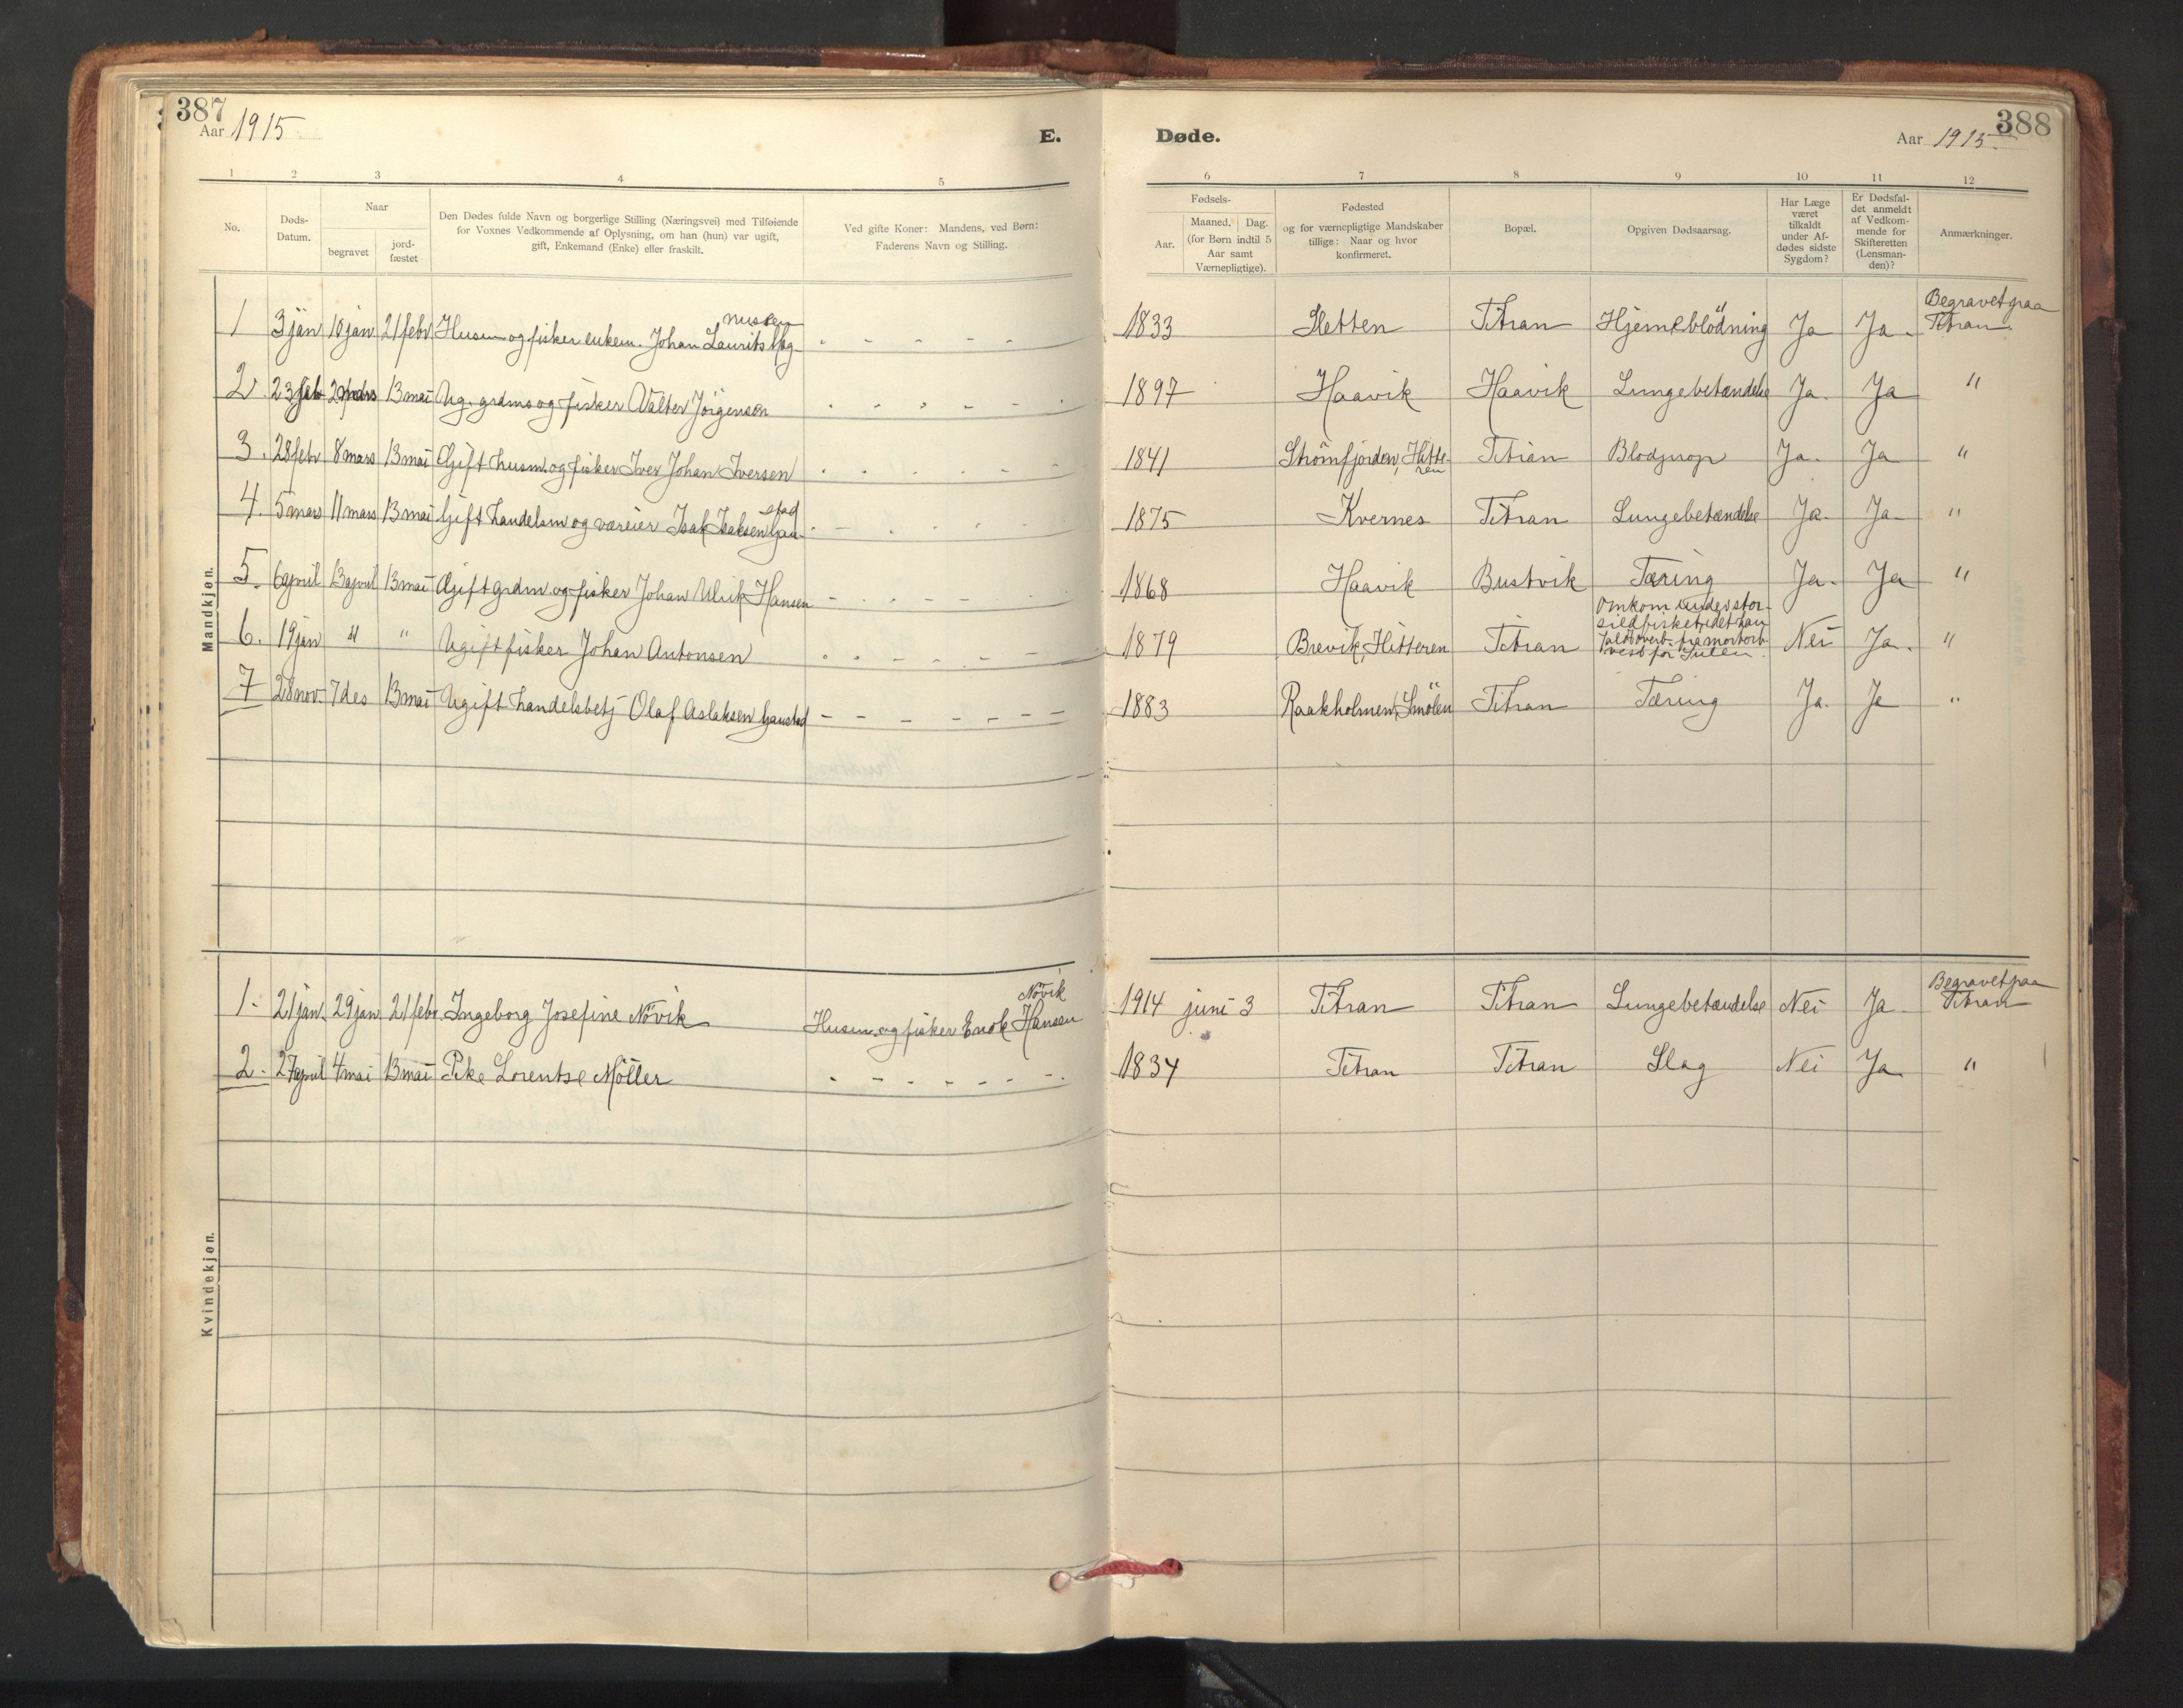 387
Aar 1915.
E.
1 2 3 4 5
No.
Døds-
Datum.
Naar
begravet
jord-
fæstet
Den Dødes fulde Navn og borgerlige Stilling (Næringsvei) med Tilføiende
for Voxnes Vedkommende af Oplysning, om han (hun) var ugift,
gift, Enkemand (Enke) eller fraskilt.
Ved gifte Koner: Mandens, ved Børn:
Faderens Navn og Stilling.
Mandkjøn.
nussen
1 3 jan 10 jan 21 febr Husm og fisker enkem. Johan Laurits Mag-
2. 23 feb 2 mars 13 mai Ug. grdms og fisker Valter Jörgensen
3. 28 febr 8 mars 13 mai Gift husm. og fisker Iver Johan Iversen
stad
4. 5 mars 11 mars 13 mai Gift handelsm og væreier Isak Isaksen Gau-
5. 6 april 13 april 13 mai Gift grdm. og fisker Johan Ulrik Hansen
6. 19 jan " " Ugift fisker Johan Antonsen
7 28 nov. 7 des 13 mai Ugift handelsbetj Olaf Aslaksen Gaustad
Kvindekjøn.
Növik
1. 21 jan. 29 jan 21 febr. Ingeborg Josefine Növik Husm. og fisker Enok Hansen
2. 27 april 4 mai 13 mai Pike Lorentse Möller
388
Døde.
Aar 1915.
6 7 8 9 10 11 12
Fødsels-
Aar.
Maaned. Dag.
(for Børn indtil 5
Aar samt
Værnepligtige).
Fødested
og for værnepligtige Mandskaber
tillige: Naar og hvor
konfirmeret.
Bopæl.
Opgiven Dødsaarsag.
Har Læge
været
tilkaldt
under Af-
dødes sidste
Sygdom?
Er Dødsfal-
det anmeldt
af Vedkom-
mende for
Skifteretten
(Lensman-
den)?
Anmærkninger.
Begravet paa
1833 Sletten Titran Hjerneblödning Ja Ja. Titran.
1897 Haavik Haavik Lungebetændelse Ja. Ja "
1841 Strömfjorden, Hitte- Titran Blodprop Ja. Ja "
ren
1875 Kvernes Titran Lungebetændelse Ja. Ja "
1868 Haavik Bustvik Tæring Ja. Ja "
Omkom under stor-
sildfisket, idet han
1879 Brevik, Hitteren Titran faldt overb. fra motorb. Nei Ja. "
vest for Sulen.
1883 Raakholmen, Smölen Titran Tæring Ja. Ja "
Begravet paa
1914 juni 3 Titran Titran Lungebetændelse Nei Ja Titran
1834 Titran Titran Slag Nei Ja. "